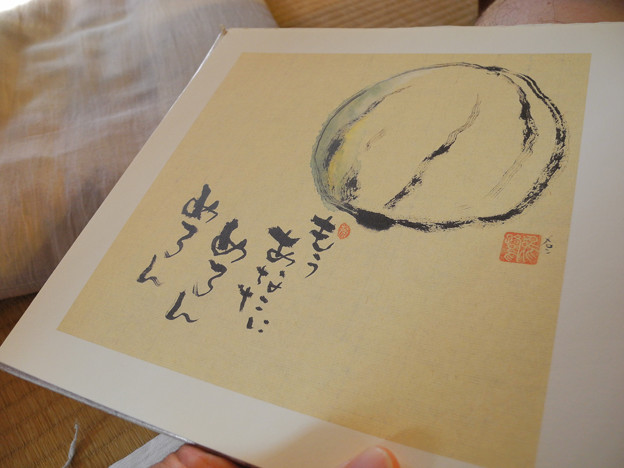 もう
あなたに
めろん
めろん